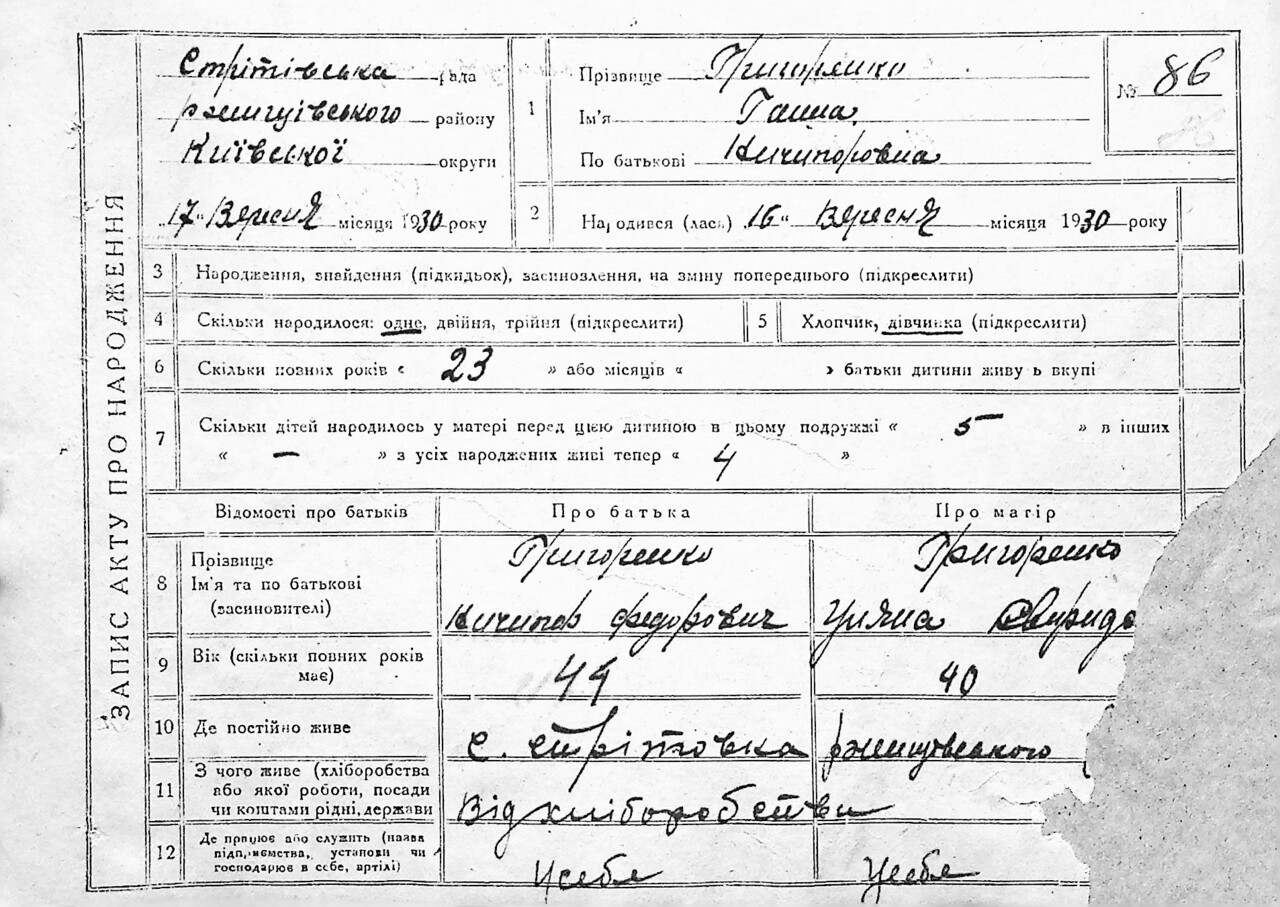 ЗАПИС АКТУ ПРО НАРОДЖЕННЯ
Стрітівська рада
ржищівського району
Київської округи
17" Вересня місяця 1930 року
1
Прізвище Григоренко
Ім'я Ганна
По батькові Ничипоровна
№ 86
2
Народився (лась) 16" Вересня місяця 1930 року
3 Народження, знайдення (підкидьок), засиновлення, на зміну попереднього (підкреслити)
4 Скільки народилося: одне, двійня, трійня (підкреслити)
5 Хлопчик, дівчинка (підкреслити)
6 Скільки повних років « 23 » або місяців « » батьки дитини живу ь вкупі
7 Скільки дітей народилось у матері перед цією дитиною в цьому подружжі « 5 » в інших
« — » з усіх народжених живі тепер « 4 »
Відомості про батьків
Про батька
Про матір
8 Прізвище
Ім'я та по батькові
(засиновителі)
Григоренко
Ничипор Федорович
Григоренко
Уляна Свирид
9 Вік (скільки повних років
має)
44
40
10 Де постійно живе
с. Стрітовка ржищівського
11 З чого живе (хліборобства
або якої роботи, посади
чи коштами рідні, держави
Від хліборобства
12 Де працює або служить (назва
підприємства, установи чи
господарює в себе, артілі)
Усебе
Усебе